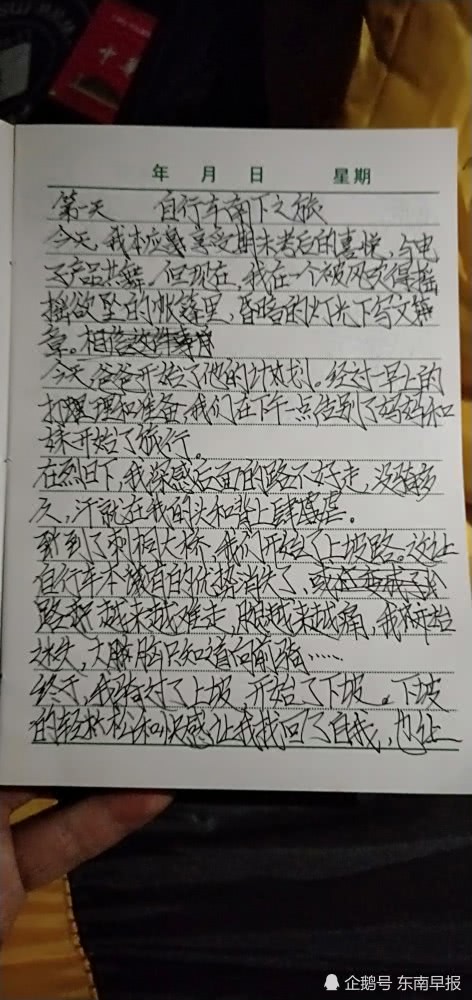 年 月 日 星期
第一天 自行车南下之旅
今天,我本应感享受期末考后的喜悦,与电
子产品共舞。但现在,我在一个被风吹得摇
摇欲坠的帐篷里,昏暗的灯光下写文
章。相信这件事有
今天,爸爸开始了他的计划。经过一早上的
打理和准备,我们在下午一点告别了妈妈和
妹开始了旅行。
在烈日下,我深感后面的路不好走,没骑多
久,汗就在我的头和背上肆虐。
到了刺桐大桥,我们开始了上坡路。这让
自行车本该有的优势消失了,
路越来越难走,腿越来越痛,我开始
迷失,大脑只知道向前踏……
终于,我骑过了上坡,开始了下坡。下坡
的轻松和快感让我找回了自我,也让
企鹅号 东南早报